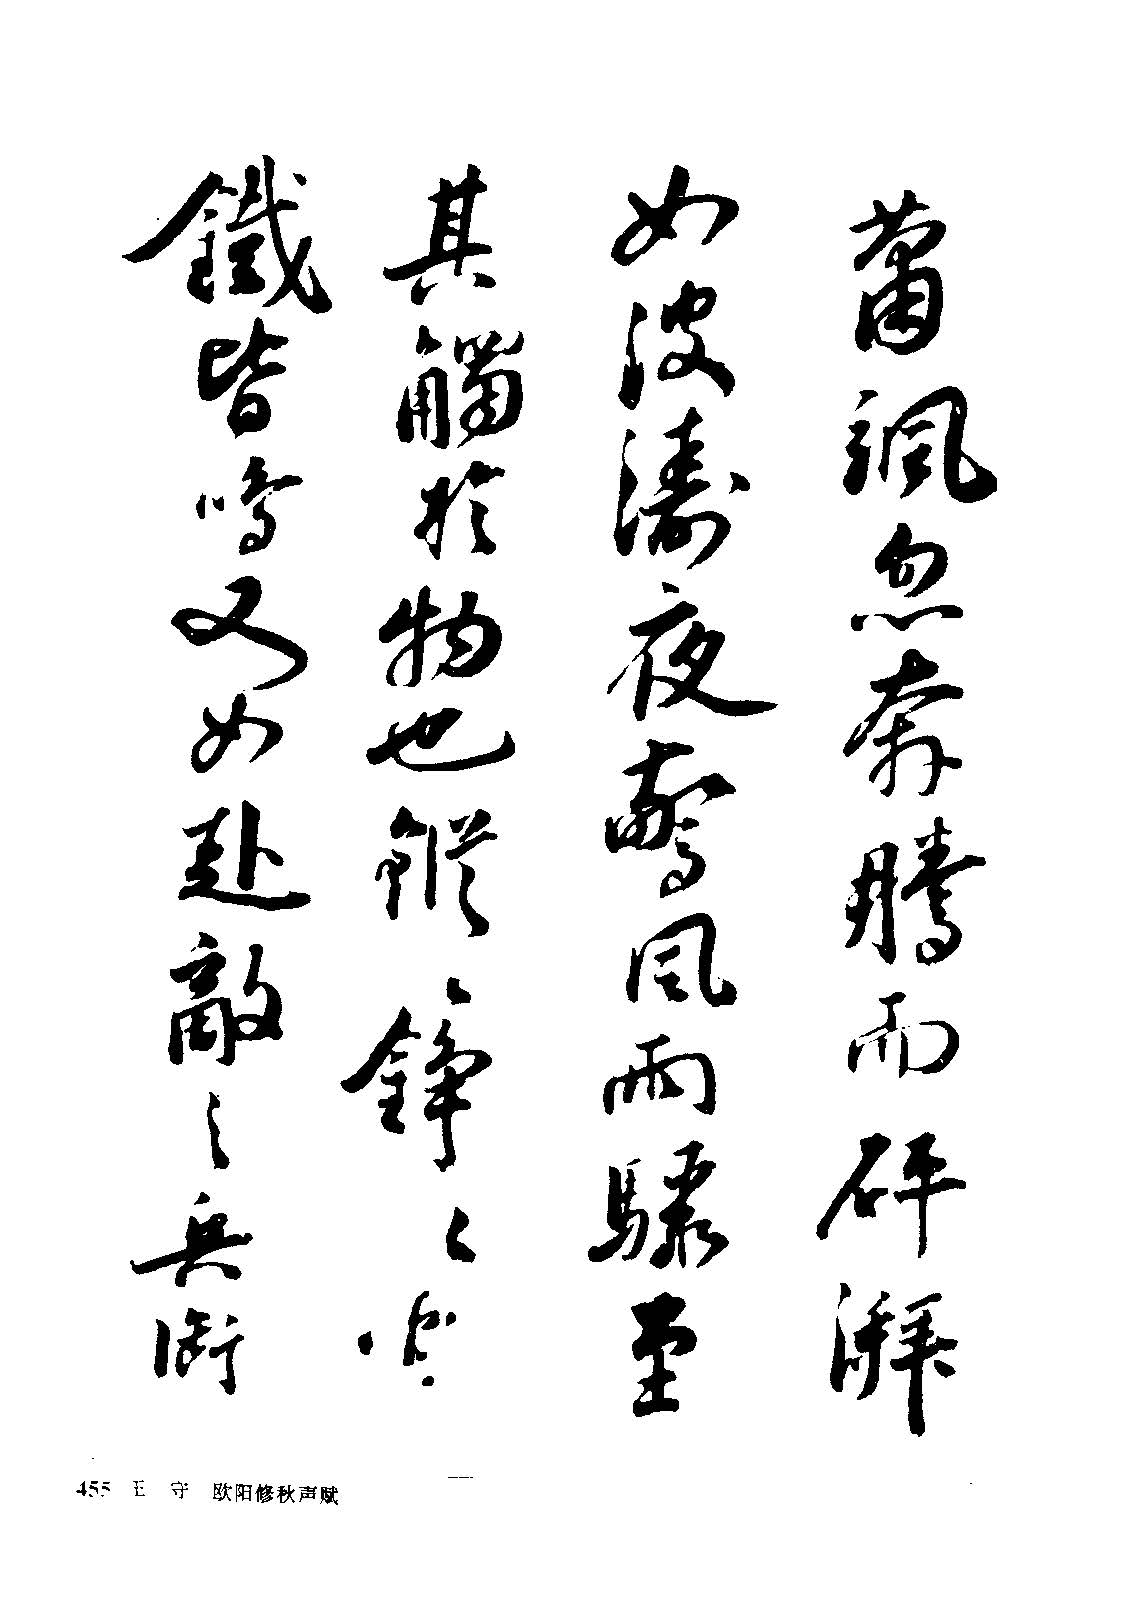 蕭颯忽奔騰而砰湃
如波濤夜驚風雨驟至
其觸於物也鏦〻錚〻金
鐵皆鳴又如赴敵之兵銜
455 王 守 欧阳修秋声赋